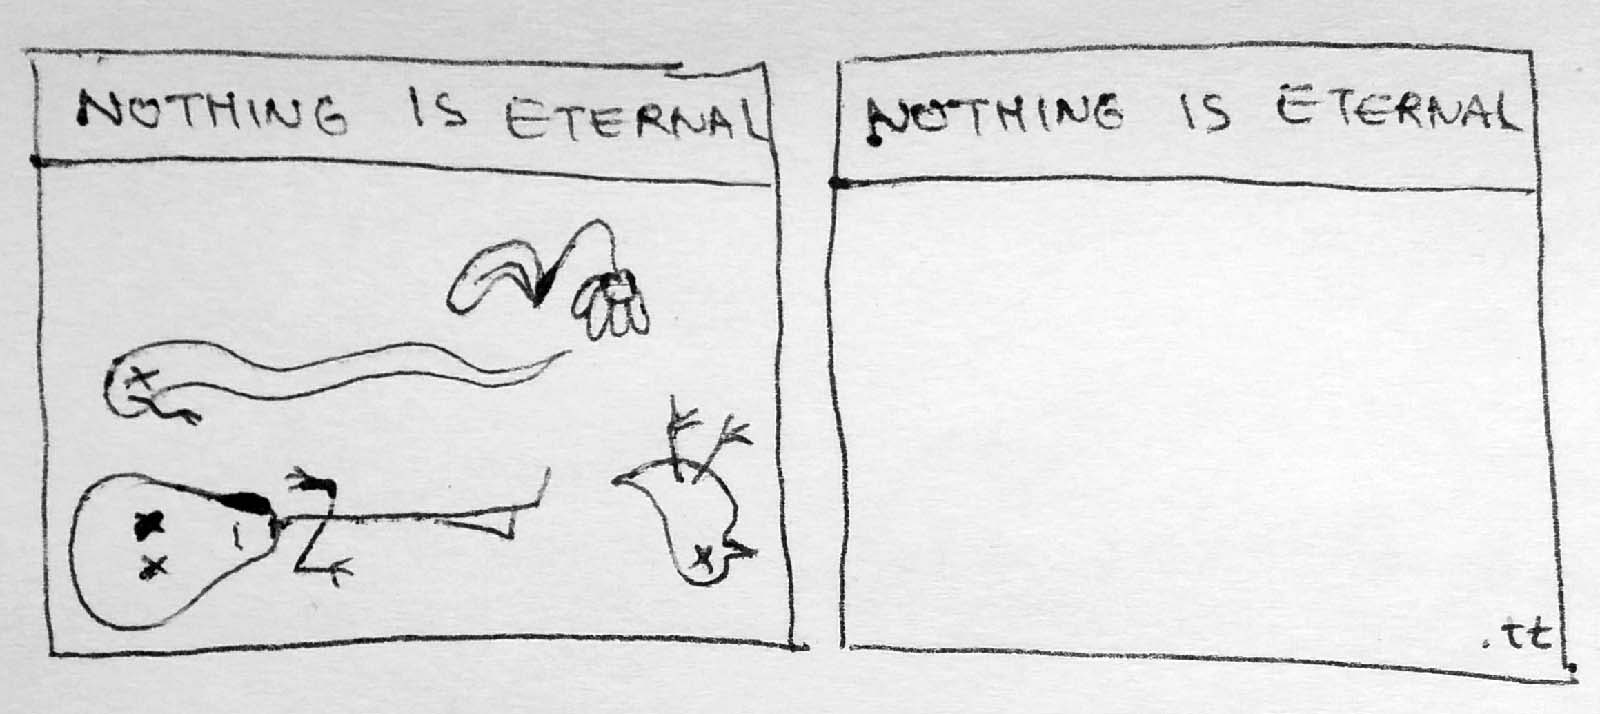 NOTHING IS ETERNAL
NOTHING IS ETERNAL
.tt